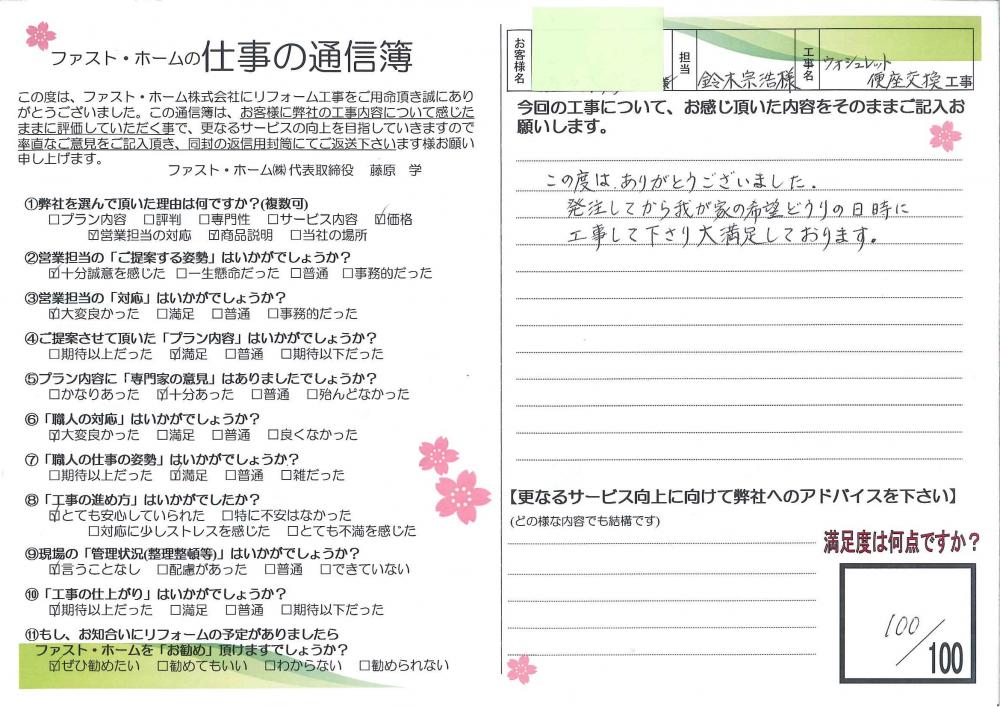 ファスト・ホームの仕事の通信簿
この度は、ファスト・ホーム株式会社にリフォーム工事をご用命頂き誠にあり
がとうございました。この通信簿は、お客様に弊社の工事内容について感じた
ままに評価していただく事で、更なるサービスの向上を目指していきますので
率直なご意見をご記入頂き、同封の返信用封筒にてご返送下さいます様お願い
申し上げます。
ファスト・ホーム㈱代表取締役　藤原　学
①弊社を選んで頂いた理由は何ですか?(複数可)
□プラン内容 □評判 □専門性 □サービス内容 ☑価格
☑営業担当の対応 ☑商品説明 □当社の場所
②営業担当の「ご提案する姿勢」はいかがでしょうか?
☑十分誠意を感じた □一生懸命だった □普通 □事務的だった
③営業担当の「対応」はいかがでしょうか?
☑大変良かった □満足 □普通 □事務的だった
④ご提案させて頂いた「プラン内容」はいかがでしょうか?
□期待以上だった ☑満足 □普通 □期待以下だった
⑤プラン内容に「専門家の意見」はありましたでしょうか?
□かなりあった ☑十分あった □普通 □殆んどなかった
⑥「職人の対応」はいかがでしょうか?
☑大変良かった □満足 □普通 □良くなかった
⑦「職人の仕事の姿勢」はいかがでしょうか?
□期待以上だった ☑満足 □普通 □雑だった
⑧「工事の進め方」はいかがでしたか?
☑とても安心していられた □特に不安はなかった
□対応に少しストレスを感じた □とても不満を感じた
⑨現場の「管理状況(整理整頓等)」はいかがでしょうか?
☑言うことなし □配慮があった □普通 □できていない
⑩「工事の仕上がり」はいかがでしょうか?
☑期待以上だった □満足 □普通 □期待以下だった
⑪もし、お知合いにリフォームの予定がありましたら
ファスト・ホームを「お勧め」頂けますでしょうか?
☑ぜひ勧めたい □勧めてもいい □わからない □勧められない
お客様名 様 担当 鈴木宗浩様 工事名 ウォシュレット
便座交換工事
今回の工事について、お感じ頂いた内容をそのままご記入お
願いします。
この度は、ありがとうございました.
発注してから我が家の希望どうりの日時に
工事して下さり大満足しております。
【更なるサービス向上に向けて弊社へのアドバイスを下さい】
(どの様な内容でも結構です)
満足度は何点ですか?
100/100